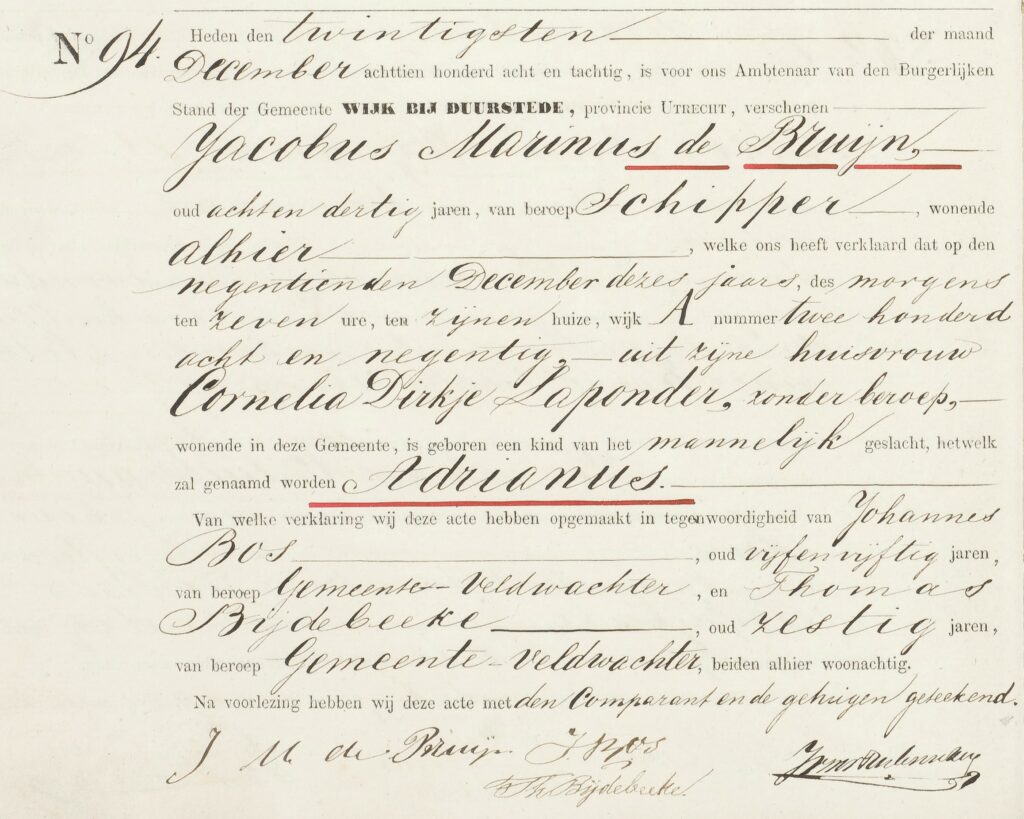 No 94. Heden den twintigsten der maand
December achttien honderd acht en tachtig, is voor ons Ambtenaar van den Burgerlijken
Stand der Gemeente WIJK BIJ DUURSTEDE, provincie UTRECHT, verschenen
Jacobus Marinus de Bruijn,
oud acht en dertig jaren, van beroep Schipper, wonende
alhier, welke ons heeft verklaard dat op den
negentienden December dezes jaars, des morgens
ten zeven ure, ten zijnen huize, wijk A nummer twee honderd
acht en negentig, uit zijne huisvrouw
Cornelia Dirkje Laponder, zonder beroep,
wonende in deze Gemeente, is geboren een kind van het mannelijk geslacht, hetwelk
zal genaamd worden Adrianus.
Van welke verklaring wij deze acte hebben opgemaakt in tegenwoordigheid van Johannes
Bos, oud vijfenvijftig jaren,
van beroep Gemeente-Veldwachter, en Thomas
Bijdebeeke, oud zestig jaren,
van beroep Gemeente-Veldwachter, beiden alhier woonachtig.
Na voorlezing hebben wij deze acte met den Comparant en de getuigen geteekend.
J M de Bruijn J Bos
Th Bijdebeeke.